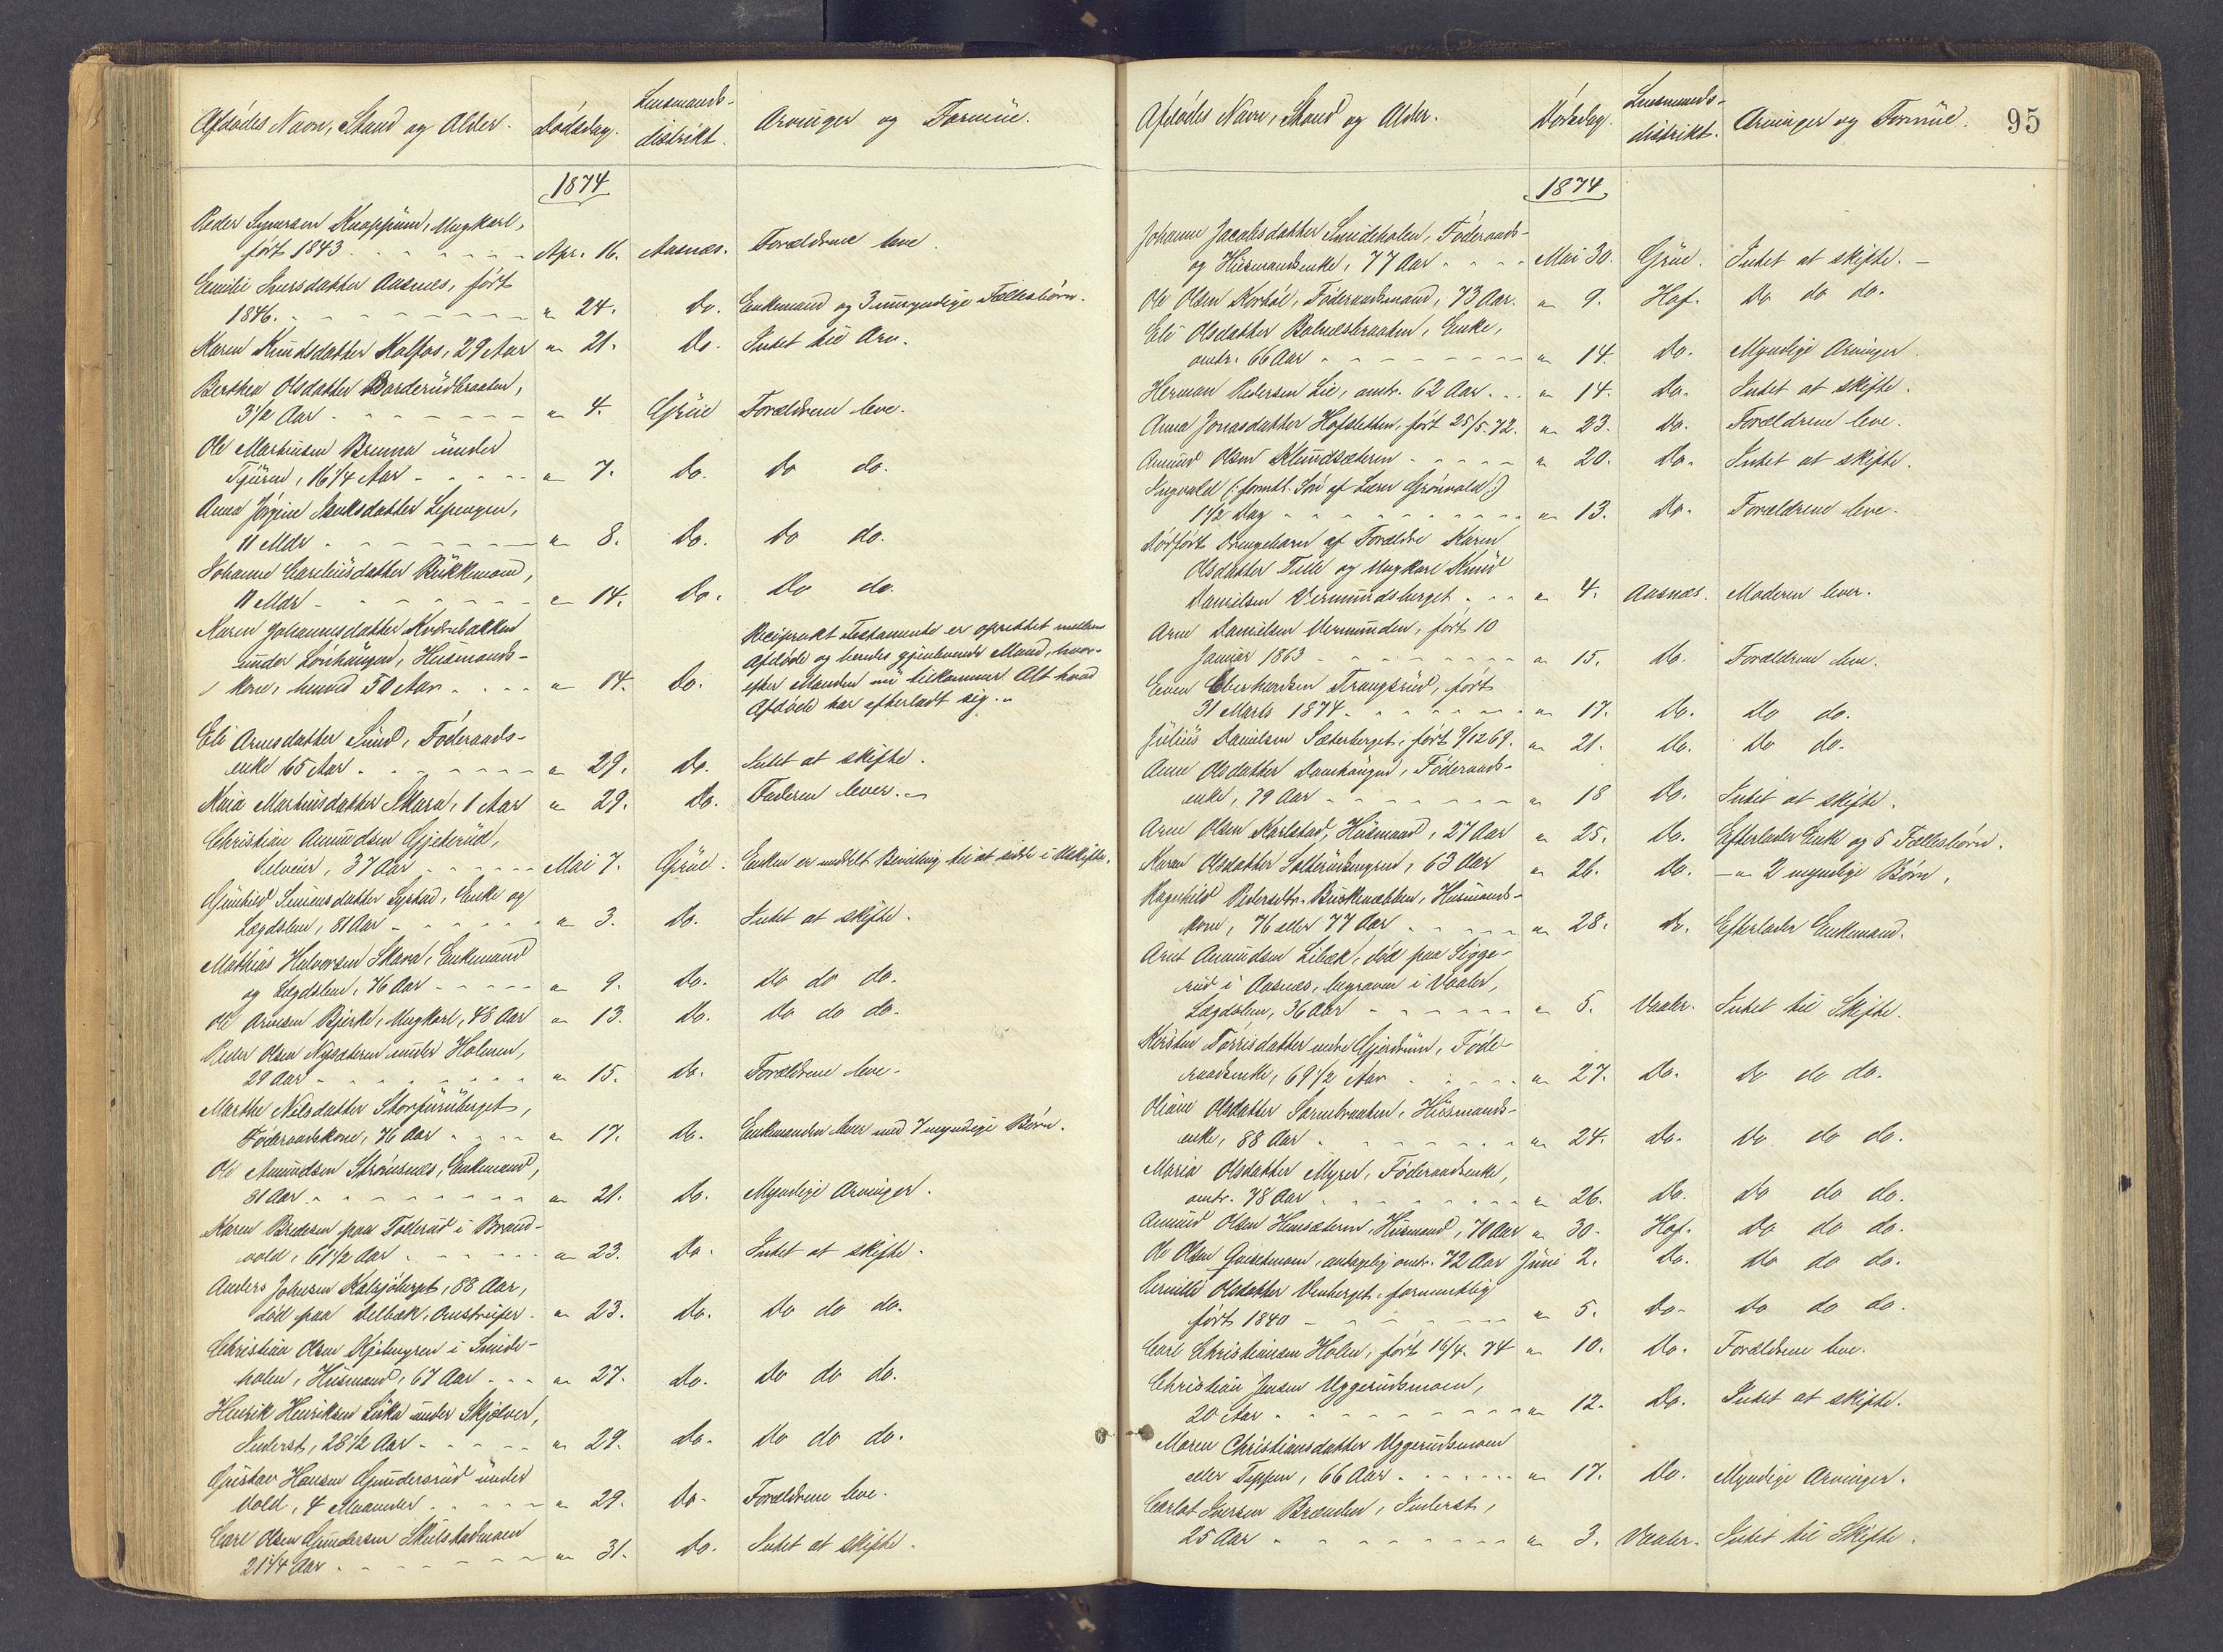 Afdødes Navn, Stand og Alder. Dødsdag. Lensmands-
distrikt. Arvinger og Formue.
1874
Peder Knappum, Ungkarl,
født 1843 Apr. 16. Aasnæs. Forældrene leve.
Emilie Iversdatter Aasnæs, født
1846. " 24. Do. Enkemand og 3 umyndige Fællesbørn.
Karen Knudsdatter Kalfos, 29 Aar " 21. Do. Intet til Arv.
Berthea Olsdatter Borderudbraaten,
3 1/2 Aar " 4. Grue Forældrene leve.
Ole Martinsen Brenna under
Tjuren, 16 1/4 Aar " 7. Do. Do do.
Anna Jørgine Larsdatter
11 Mdr " 8. Do. Do do.
Johanne Bukkemoen,
11 Mdr " 14. Do. Do do.
Karen Johannesdatter
under Lønhaugen, Husmands-
kone, henved 50 Aar " 14. Do. Reciprokt Testamente er oprettet mellem
Afdøde og hendes gjenlevende Mand, hvor-
efter Manden nu tilkommer Alt hvad
Afdøde har efterladt sig.
Eli Arnesdatter Sund, Føderaads-
enke 65 Aar " 29. Do. Intet at skifte.
Maia Martinsdatter Skara, 1 Aar " 29. Do. Faderen lever.
Christian Amundsen Gjeterud,
Selveier, 37 Aar Mai 7. Grue. Enken er meddelt Bevilling til at sidde i Uskifte.
Gunhild Simensdatter Systad, Enke og
Lægdslem, 81 Aar " 3. Do. Intet at skifte.
Mathias Halvorsen Skara, Enkemand
og Lægdslem, 76 Aar " 9. Do. Do do do.
Ole Arnesen Bjerke, Ungkarl, 48 Aar " 13. Do. Do do do.
Peder Olsen Nysæteren under Holmen,
29 Aar " 15. Do. Forældrene leve.
Marthe Nilsdatter Storfuruberget,
Føderaadskone, 76 Aar " 17. Do. Enkemanden lever med 7 myndige Børn.
Ole Amundsen Strømsnes, Enkemand,
81 Aar " 21. Do. Myndige Arvinger.
Karen Bredesen paa Tollerud i Brand-
vold, 61 1/2 Aar " 23. Do. Intet at skifte.
Anders Johnsen Kalsjøberget, 88 Aar,
død paa " 23. Do. Do do do.
Christian Olsen Kjølnyren i Smide-
holen, Husmand, 67 Aar " 27. Do. Do do do.
Henrik Henriksen Liska under Skjølver,
Inderst, 28 1/2 Aar " 29. Do. Do do do.
Gustav Hansen Gundersrud under
Vold, 4 Maaneder " 29. Do. Forældrene leve.
Carl Olsen Gundersen Skulstadmoen
21 1/4 Aar " 31. Do. Intet at skifte.
Afdødes Navn, Stand og Alder. Dødsdag. Lensmands-
distrikt. Arvinger og Formue. 95
1874
Johanne Jacobsdatter Smideholen, Føderaads-
og Husmandsenke, 77 Aar Mai 30. Grue. Intet at skifte.
Ole Olsen Korhøl, Føderaadsmand, 73 Aar. " 9. Hof. Do do do.
Eli Olsdatter Bolnæsbraaten, Enke,
omtr. 66 Aar " 14. Do. Myndige Arvinger.
Herman Pedersen Lie, omtr. 62 Aar " 14. Do. Intet at skifte.
Anna Jonasdatter Hofsletten, født 25/5.72. " 23. Do. Forældrene leve.
Amund Olsen Klundsæteren " 20. Do. Intet at skifte.
Ingvald (: formtl. Søn af Lærer Grønvold :)
1 1/2 Dag " 13. Do. Forældrene leve.
Dødfødt Drengebarn af Forældre Karen
Olsdatter Tulle og Ungkarl Knud
Danielsen Vermundsberget " 4. Aasnæs. Moderen lever.
Arne Danielsen Vermunden, født 10
Januar 1863 " 15. Do. Forældrene leve.
Even Eberhardsen Trangsrud, født
31 Marts 1874 " 17. Do. Do do.
Julius Danielsen Sæterberget, født 9/12 69. " 21. Do. Do do.
Anne Olsdatter Damhaugen, Føderaads-
enke, 79 Aar " 18 Do. Intet at skifte.
Arne Olsen Karlstad, Husmand, 27 Aar " 25. Do. Efterlader Enke og 5 Fællesbørn.
Karen Olsdatter 63 Aar " 26. Do. — " 2 myndige Børn.
Ragnhild Pedersdtr. Buskenæbben, Husmands-
kone, 76 eller 77 Aar " 28. Do. Efterlader Enkemand.
Arnt Amundsen Libæk, død paa Sigge-
rud i Aasnæs, begraven i Vaaler,
Lægdslem, 36 Aar " 5. Vaaler. Intet til Skifte.
Kirsten Torrisdatter nedre Gjerdrum, Føde-
raadsenke, 69 1/2 Aar " 27. Do. Do do do.
Oliane Olsdatter Sornbraaten, Husmands-
enke, 88 Aar " 24. Do. Do do do.
Maria Olsdatter Myrer, Føderaadsenke,
omtr. 78 Aar " 26. Do. Do do do.
Amund Olsen Hemsæteren, Husmand, 70 Aar " 30. Hof. Do do do.
Ole Olsen antagelig omtr. 72 Aar Juni 2. Do. Do do do.
Pernille Olsdatter Venberget, formentlig
født 1840 " 5. Do. Do do do.
Carl Christiansen Holen, født 16/4. 74 " 10. Do. Forældrene leve.
Christian Jensen Uggerudsmoen,
20 Aar " 12. Do. Intet at skifte.
Maren Christiansdatter Uggerudsmoen
eller Teppen, 66 Aar " 17. Do. Myndige Arvinger.
Iversen Brænden, Inderst,
25 Aar " 3. Vaaler. Intet til Skifte.